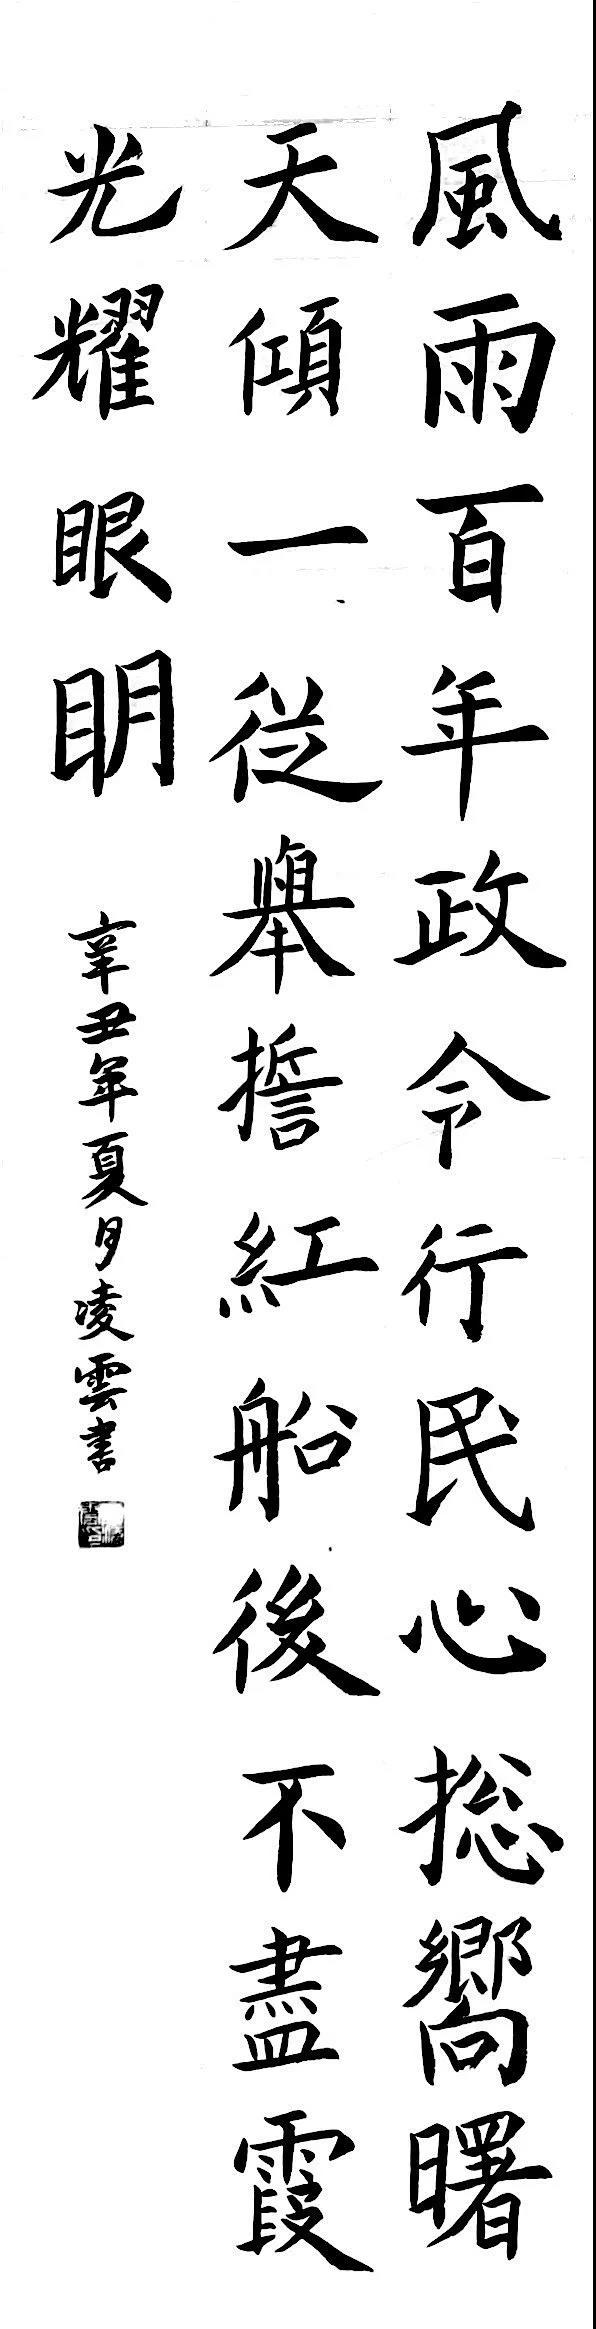 風雨百年政令行民心捴嚮曙
天傾一從舉擔紅船後不盡霞
光耀眼明
辛丑年夏月凌雲書